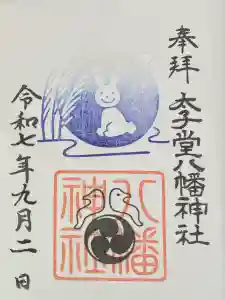 奉拝
太子堂八幡神社
令和七年九月二日
八幡
神社